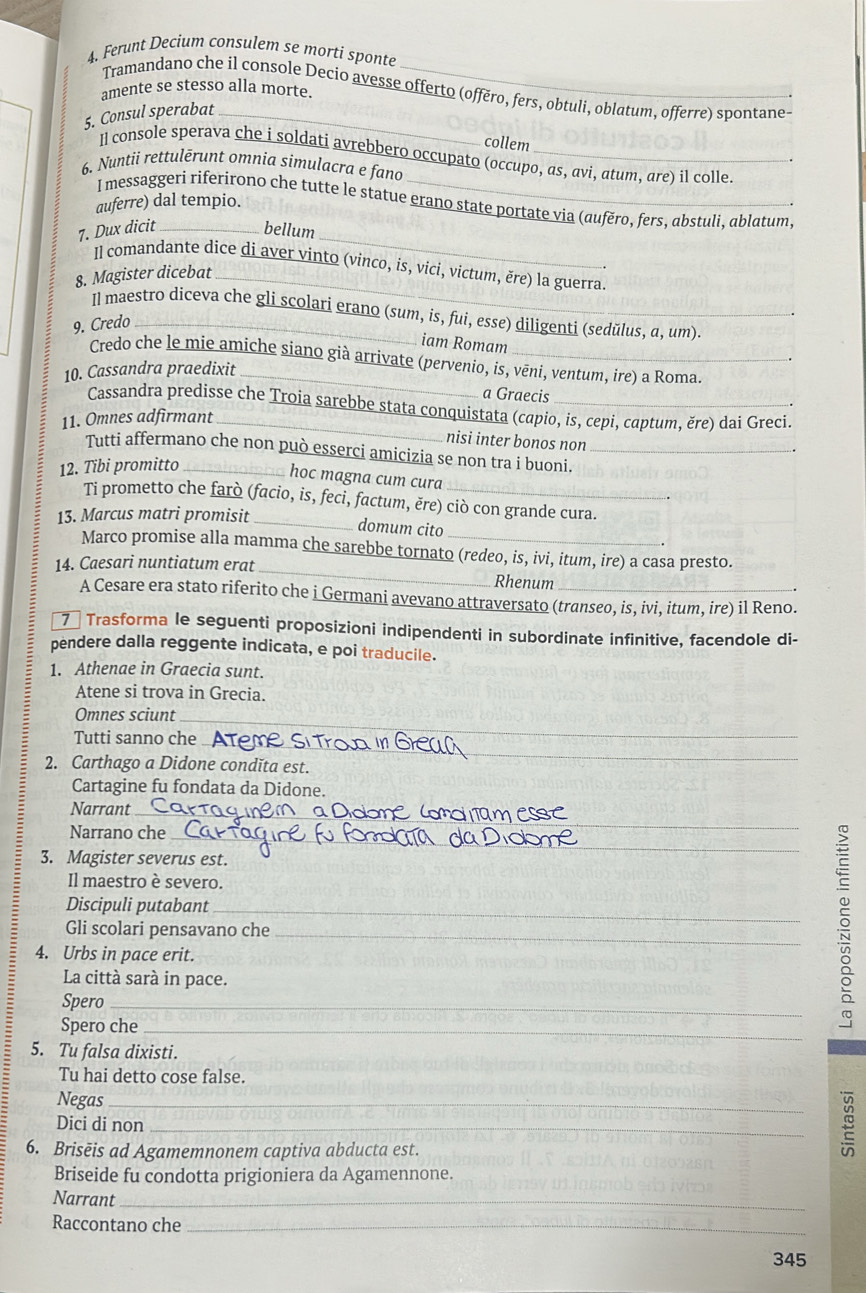 4. Ferunt Decium consulem se morti sponte ____.
Tramandano che il console Decio avesse offerto (offĕro, fers, obtuli, oblatum, offerre) spontane-
amente se stesso alla morte.
5. Consul sperabat ____ collem ____.
Il console sperava che i soldati avrebbero occupato (occupo, as, avi, atum, are) il colle.
6. Nuntii rettulērunt omnia simulacra e fano ____.
I messaggeri riferirono che tutte le statue erano state portate via (aufĕro, fers, abstuli, ablatum,
auferre) dal tempio.
7. Dux dicit ____ bellum ____.
Il comandante dice di aver vinto (vinco, is, vici, victum, ĕre) la guerra.
8. Magister dicebat ____.
Il maestro diceva che gli scolari erano (sum, is, fui, esse) diligenti (sedŭlus, a, um).
9. Credo ____ iam Romam ____.
Credo che le mie amiche siano già arrivate (pervenio, is, vēni, ventum, ire) a Roma.
10. Cassandra praedixit ____ a Graecis ____.
Cassandra predisse che Troia sarebbe stata conquistata (capio, is, cepi, captum, ĕre) dai Greci.
11. Omnes adfirmant ____ nisi inter bonos non ____.
Tutti affermano che non può esserci amicizia se non tra i buoni.
12. Tibi promitto ____ hoc magna cum cura ____.
Ti prometto che farò (facio, is, feci, factum, ĕre) ciò con grande cura.
13. Marcus matri promisit ____ domum cito ____.
Marco promise alla mamma che sarebbe tornato (redeo, is, ivi, itum, ire) a casa presto.
14. Caesari nuntiatum erat ____ Rhenum ____.
A Cesare era stato riferito che i Germani avevano attraversato (transeo, is, ivi, itum, ire) il Reno.
7 Trasforma le seguenti proposizioni indipendenti in subordinate infinitive, facendole di-
pendere dalla reggente indicata, e poi traducile.
1. Athenae in Graecia sunt.
Atene si trova in Grecia.
Omnes sciunt ____
Tutti sanno che Atene si trova in Grecia
2. Carthago a Didone condĭta est.
Cartagine fu fondata da Didone.
Narrant Cartaginem a Didone conditam esse
Narrano che Cartagine fu fondata da Didone
3. Magister severus est.
Il maestro è severo.
Discipuli putabant ____
Gli scolari pensavano che ____
4. Urbs in pace erit.
La città sarà in pace.
Spero ____
Spero che ____
5. Tu falsa dixisti.
Tu hai detto cose false.
Negas ____
Dici di non ____
6. Brisēis ad Agamemnonem captiva abducta est.
Briseide fu condotta prigioniera da Agamennone.
Narrant ____
Raccontano che ____
345
La proposizione infinitiva
Sintassi